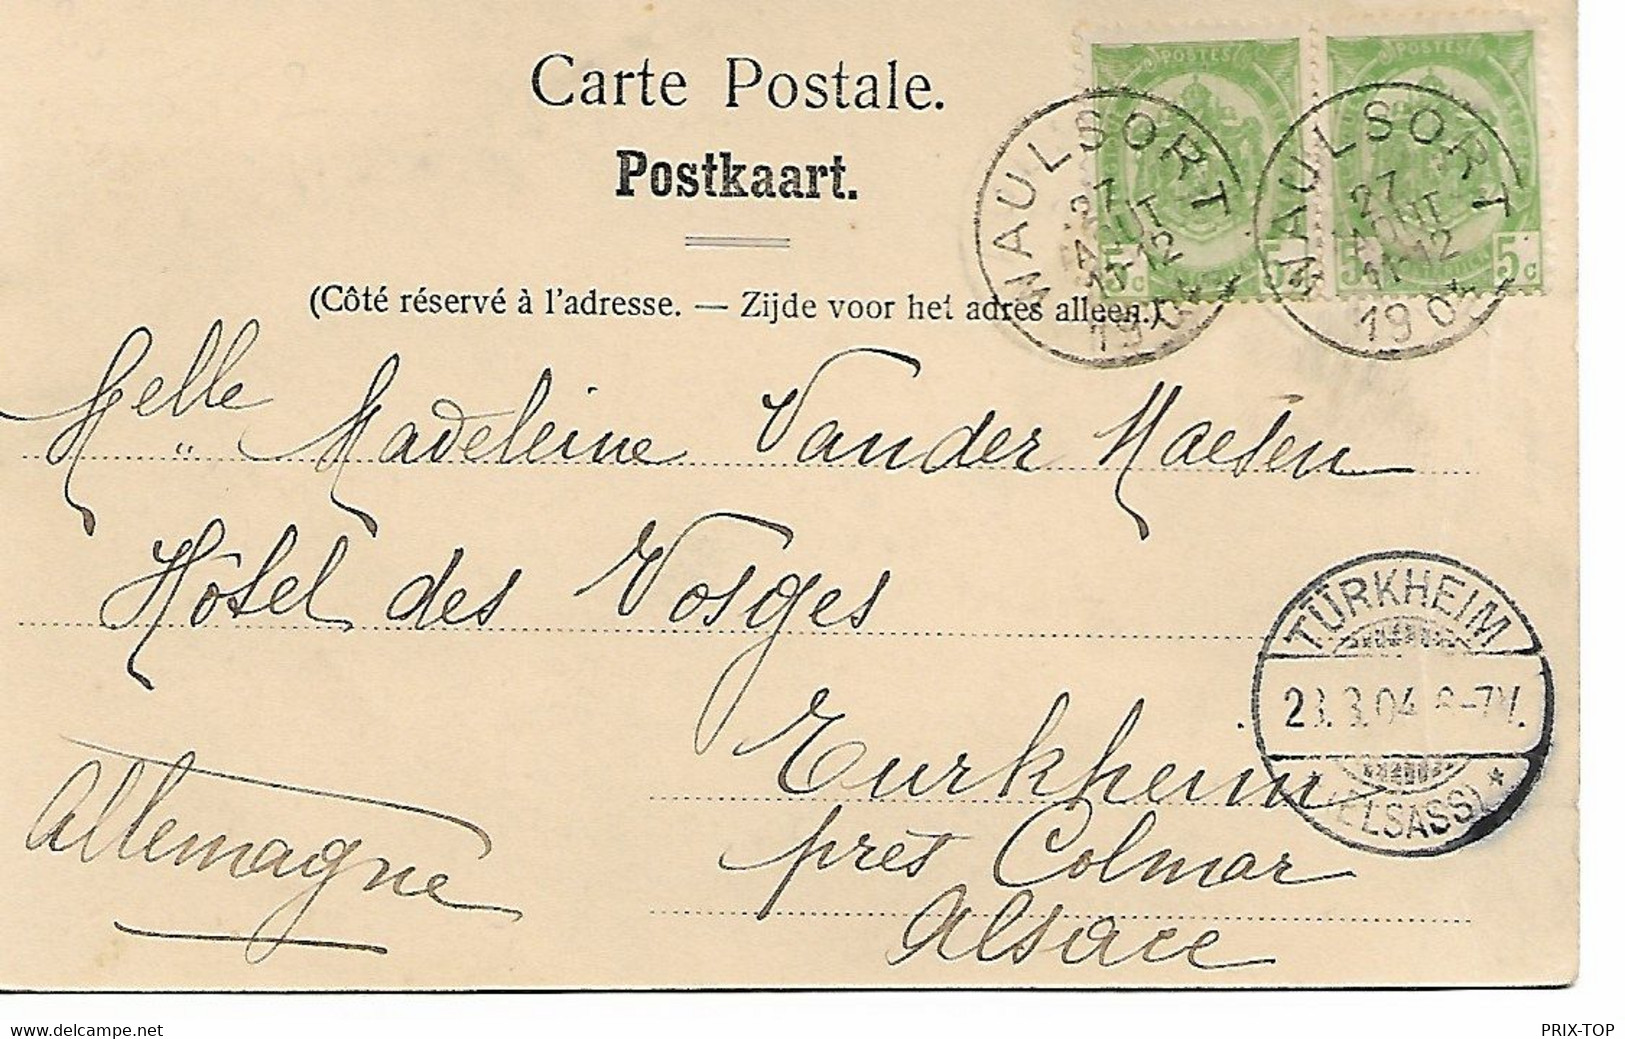 Carte Postale.
Postkaart.
(Côté réservé à l'adresse. — Zijde voor het adres alleen.)
POSTES POSTES
5c 5c 5c 5c
MAULSORT
27
AOUT
11-12
1904
MAULSORT
27
AOUT
11-12
1904
Melle Madeleine Vander Maesen
Hôtel des Vosges
Turkheim
près Colmar
Alsace
Allemagne
TÜRKHEIM
04 -7V.
(ELSASS) *
delcampe.net
PRIX-TOP